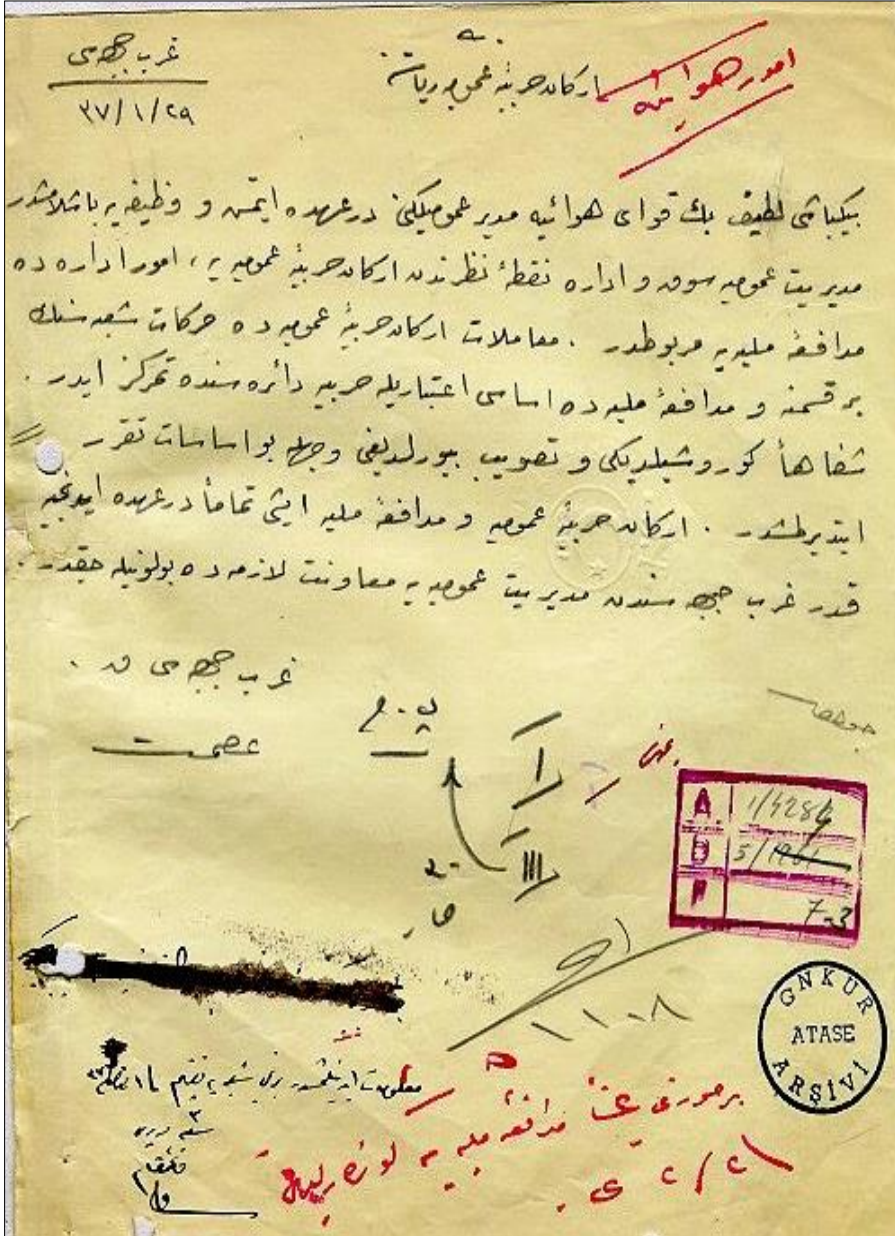 غرب جبهه‌سی
٣٧/١/٢٩
امور هوائیه
ارکان حربیهٔ عمومیه ریاسته
بیکباشی لطیف بك قوای هوائیه مدیر عمومیلکنی درعهده ایتمش و وظیفه‌یه باشلامشدر
مدیریت عمومیه سوق و اداره نقطهٔ نظرندن ارکان حربیهٔ عمومیه‌یه، امور اداره‌ده
مدافعهٔ ملیه‌یه مربوطدر . معاملات ارکان حربیهٔ عمومیه‌ده حرکات شعبه‌سنك
بر قسمنه و مدافعهٔ ملیه‌ده اساسی اعتباریله حربیه دائره‌سنده تمرکز ایدر .
شفاهاً کوروشیلدیکی و تصویب بیورلدیغی وجهله بو اساسات تقرر
ایتدیرلمشدر . ارکان حربیهٔ عمومیه و مدافعهٔ ملیه ایشی تماماً درعهده ایدنجیه
قدر غرب جبهه‌سندن مدیریت عمومیه‌یه معاونت لازمه‌ده بولونیله‌جقدر .
غرب جبهه‌سی ق .
عصمت
I
III
A 1/4282
D 5/1961
F 7-3
١١٠٨
GNKUR
ATASE
ARŞİVİ
مدافعهٔ ملیه‌یه
٢١/٢